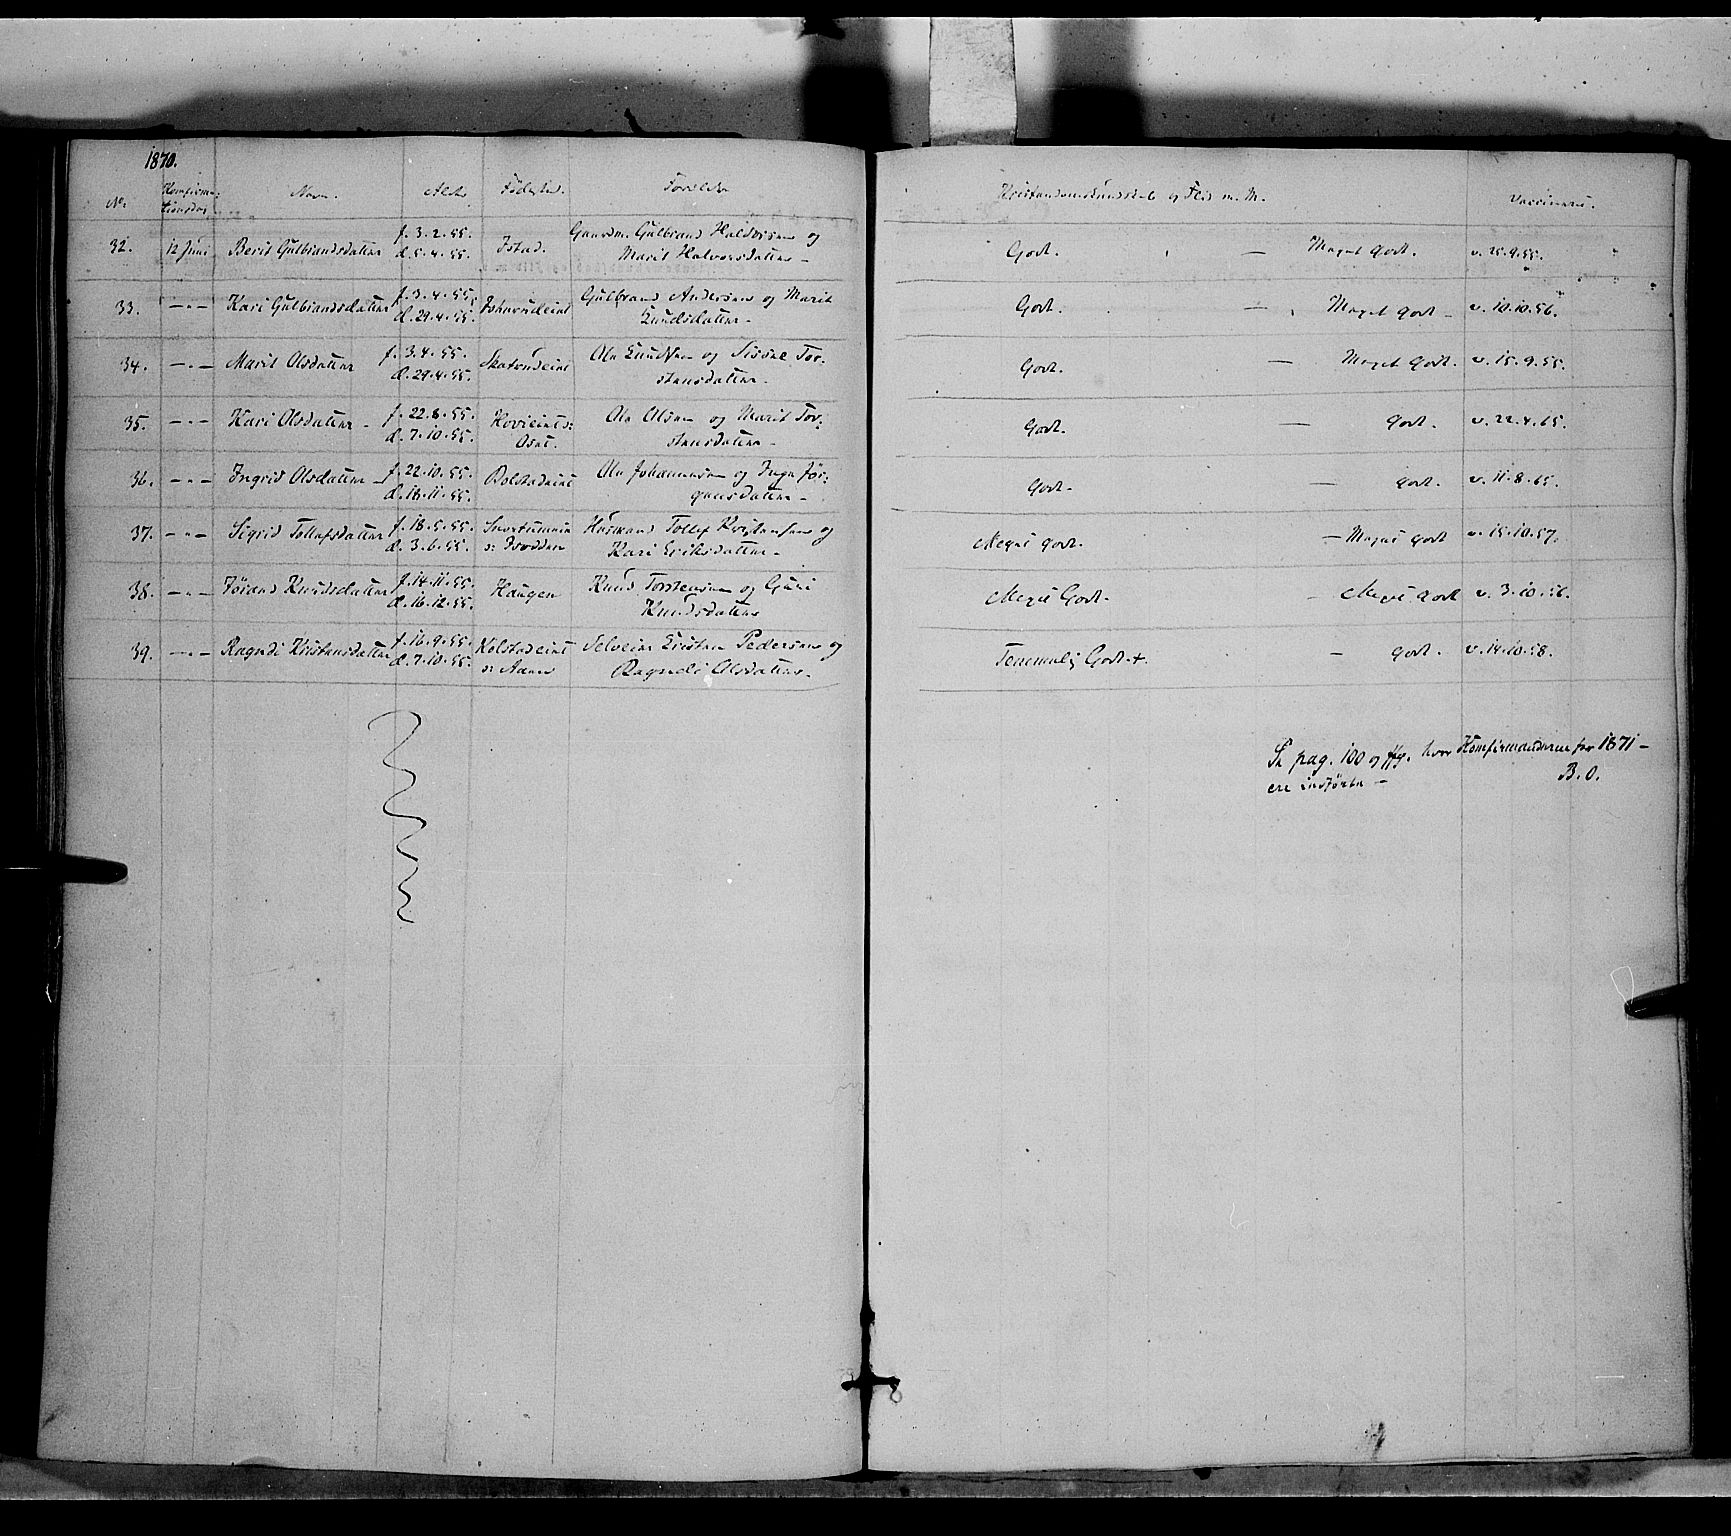 1870.
No. Konfirma- Navn. Alder Födested. Forældre Kristendomskundskab og Flid m.M. Vaccineret.
tionsdag
32. 12 Juni Berit Gulbrandsdatter f. 3.2.55. Istad. Gaardm. Gulbrand Haldorsen og Godt. — Meget Godt. v. 25.9.55.
d. 5.4.55. Marit Halvorsdatter —
33. — " — Kari Gulbrandsdatter f. 3.4.55. Gulbrand Andersen og Marit Godt. — Meget Godt — v. 10.10.56.
d. 29.4.55. Knudsdatter —
34. — " — Marit Olsdatter f. 3.4.55. Skatrudeiet Ole Knudsen og Sissel Tor- Godt. — Meget Godt. v. 15.9.55.
d. 29.4.55. stensdatter —
35. — " — Kari Olsdatter — f. 22.8.55. Ole Olsen og Marit Tor- Godt. — Godt. v. 22.4.65.
d. 7.10.55. stensdatter —
36. — " — Ingrid Olsdatter f. 22.10.55. Bolstadeiet Ole Johannesen og Inger Jör- Godt — — Godt. v. 11.8.65.
d. 18.11.55. gensdatter —
37. — " — Sigrid Tollefsdatter f. 18.5.55. Husmand Tollef Kristensen og Meget godt. — Meget godt v. 15.10.57.
d. 3.6.55. Kari Eriksdatter —
38. — " — Jörand Knudsdatter f. 14.11.55. Haugen Knud Torstensen og Guri Meget Godt. — Meget Godt v. 3.10.56.
d. 16.12.55. Knudsdatter
39. — " — Ragndi Kristensdatter f. 16.9.55. Kolstadeiet Selveier Kristen Pedersen og Temmelig Godt + — Godt. v. 14.10.58.
d. 7.10.55. Ragndi Olsdatter —
Se pag. 100 og ffg. hvor Konfirmanderne for 1871 —
ere indförte — B.O.